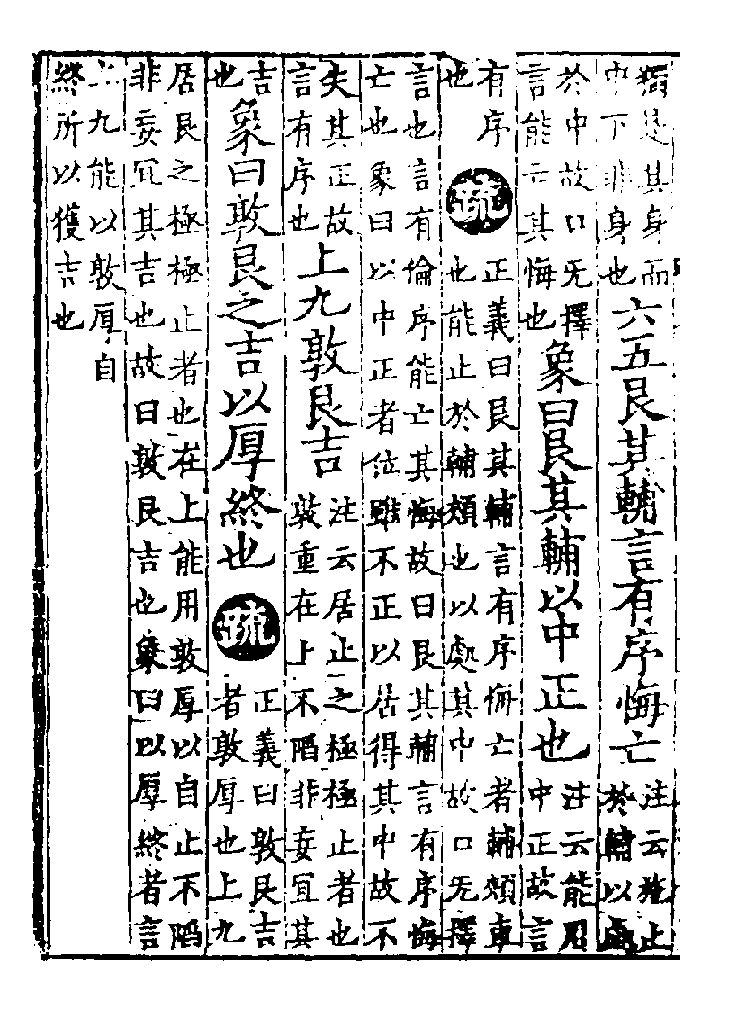 獨其身而
中下非身也
六五艮其輔言有序悔亡
注云施止
於輔以處
於中故口无擇
言能亡其悔也
象曰艮其輔以中正也
注云能用
中正故言
有序
也
疏
正義曰艮其輔言有序悔亡者輔頰車
也能止於輔頰也以處其中故口无擇
言也言有倫序能亡其悔故曰艮其輔言有序悔
亡也象曰以中正者位雖不正以居得其中故不
失其正故
言有序也
上九敦艮吉
注云居止之極極止者也
敦重在上不陷非妄宜其
吉
也
象曰敦艮之吉以厚終也
疏
正義曰敦艮吉
者敦厚也上九
居艮之極極止者也在上能用敦厚以自止不陷
非妄宜其吉也故曰敦艮吉也象曰以厚終者言
上九能以敦厚自
終所以獲吉也